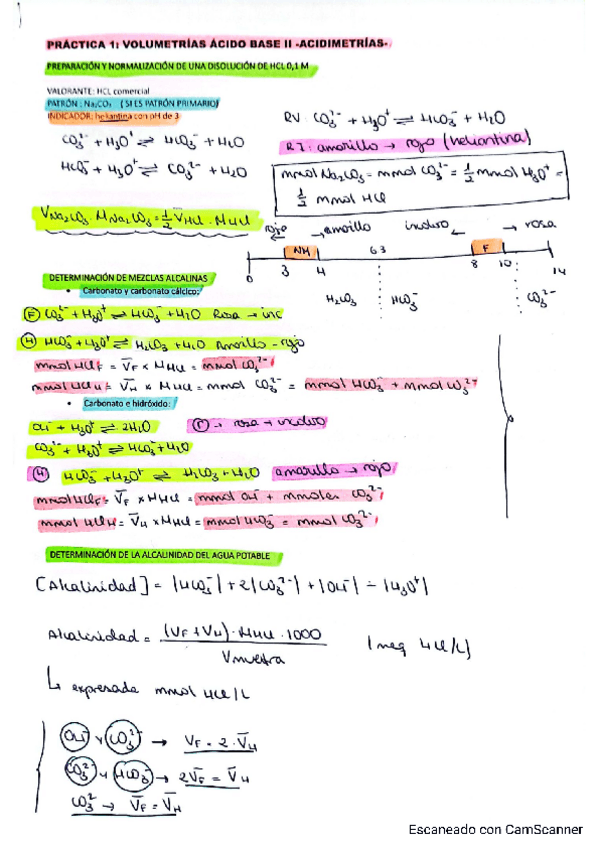 PRÁCTICA 1: VOLUMETRÍAS ÁCIDO BASE II -ACIDIMETRÍAS-
PREPARACIÓN Y NORMALIZACIÓN DE UNA DISOLUCIÓN DE HCL 0,1 M
VALORANTE: HCL comercial
PATRÓN : Na₂CO₃ ( SI ES PATRÓN PRIMARIO)
INDICADOR: heliantina con pH de 3
RV: CO₃²⁻ + H₃O⁺ ⇌ HCO₃⁻ + H₂O
CO₃²⁻ + H₃O⁺ ⇌ HCO₃⁻ + H₂O
RI: amarillo → rojo (heliantina)
HCO₃⁻ + H₃O⁺ ⇌ CO₃²⁻ + H₂O
mmol Na₂CO₃ = mmol CO₃²⁻ = 1/2 mmol H₃O⁺ =
1/2 mmol HCl
V Na₂CO₃ · M Na₂CO₃ = 1/2 V̄HCl · MHCl
rojo → amarillo incoloro ← → rosa
NH 63 F
0 3 4 8 10 14
H₂CO₃ HCO₃⁻ CO₃²⁻
DETERMINACIÓN DE MEZCLAS ALCALINAS
• Carbonato y carbonato cálcico:
(F) CO₃²⁻ + H₃O⁺ ⇌ HCO₃⁻ + H₂O Rosa → inc
(H) HCO₃⁻ + H₃O⁺ ⇌ H₂CO₃ + H₂O Amarillo - rojo
mmol HClF = V̄F × MHCl = mmol CO₃²⁻
mmol HClH = V̄H × MHCl = mmol CO₃²⁻ = mmol HCO₃⁻ + mmol CO₃²⁻
• Carbonato e hidróxido:
OH⁻ + H₃O⁺ ⇌ 2H₂O (F) → rosa → incoloro
CO₃²⁻ + H₃O⁺ ⇌ HCO₃⁻ + H₂O
(H) HCO₃⁻ + H₃O⁺ ⇌ H₂CO₃ + H₂O amarillo → rojo
mmol HClF = V̄F × MHCl = mmol OH⁻ + mmoles CO₃²⁻
mmol HClH = V̄H × MHCl = mmol HCO₃⁻ = mmol CO₃²⁻
DETERMINACIÓN DE LA ALCALINIDAD DEL AGUA POTABLE
[Alcalinidad] = |HCO₃⁻| + 2|CO₃²⁻| + |OH⁻| - |H₃O⁺|
Alcalinidad = (VF + VH) · MHCl · 1000 / Vmuestra (meq HCl/L)
↳ expresada mmol HCl/L
OH⁻ y CO₃²⁻ → VF = 2 · V̄H
CO₃²⁻ y HCO₃⁻ → 2V̄F = V̄H
CO₃² → V̄F = V̄H
Escaneado con CamScanner